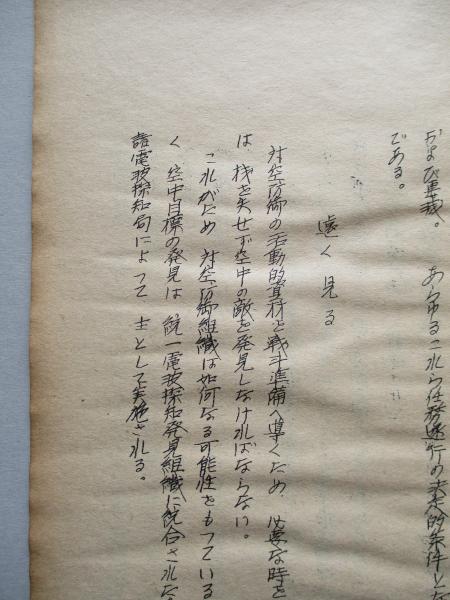 および重載。 あらゆるこれら任務遂行の
である。
遠く見る
対空防御の活動的資材を戦斗準備へ導くため、必要な時と
は、機を失せず空中の敵を発見しなければならない。
これがため 対空防御組織は如何なる可能性をもつている
く 空中目標の発見は 統一電波探知発見組織に統合された
諸電波探知局によつて 主として実施される。